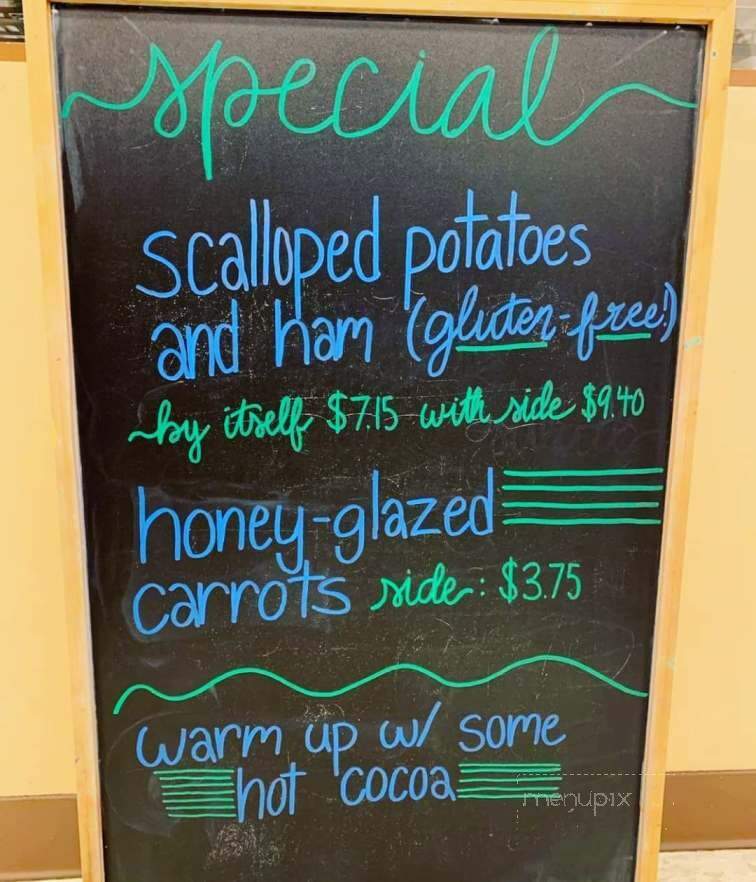 special
scalloped potatoes
and ham (gluten-free!)
by itself $7.15 with side $9.40
honey-glazed
carrots side: $3.75
warm up w/ some
hot cocoa
menupix